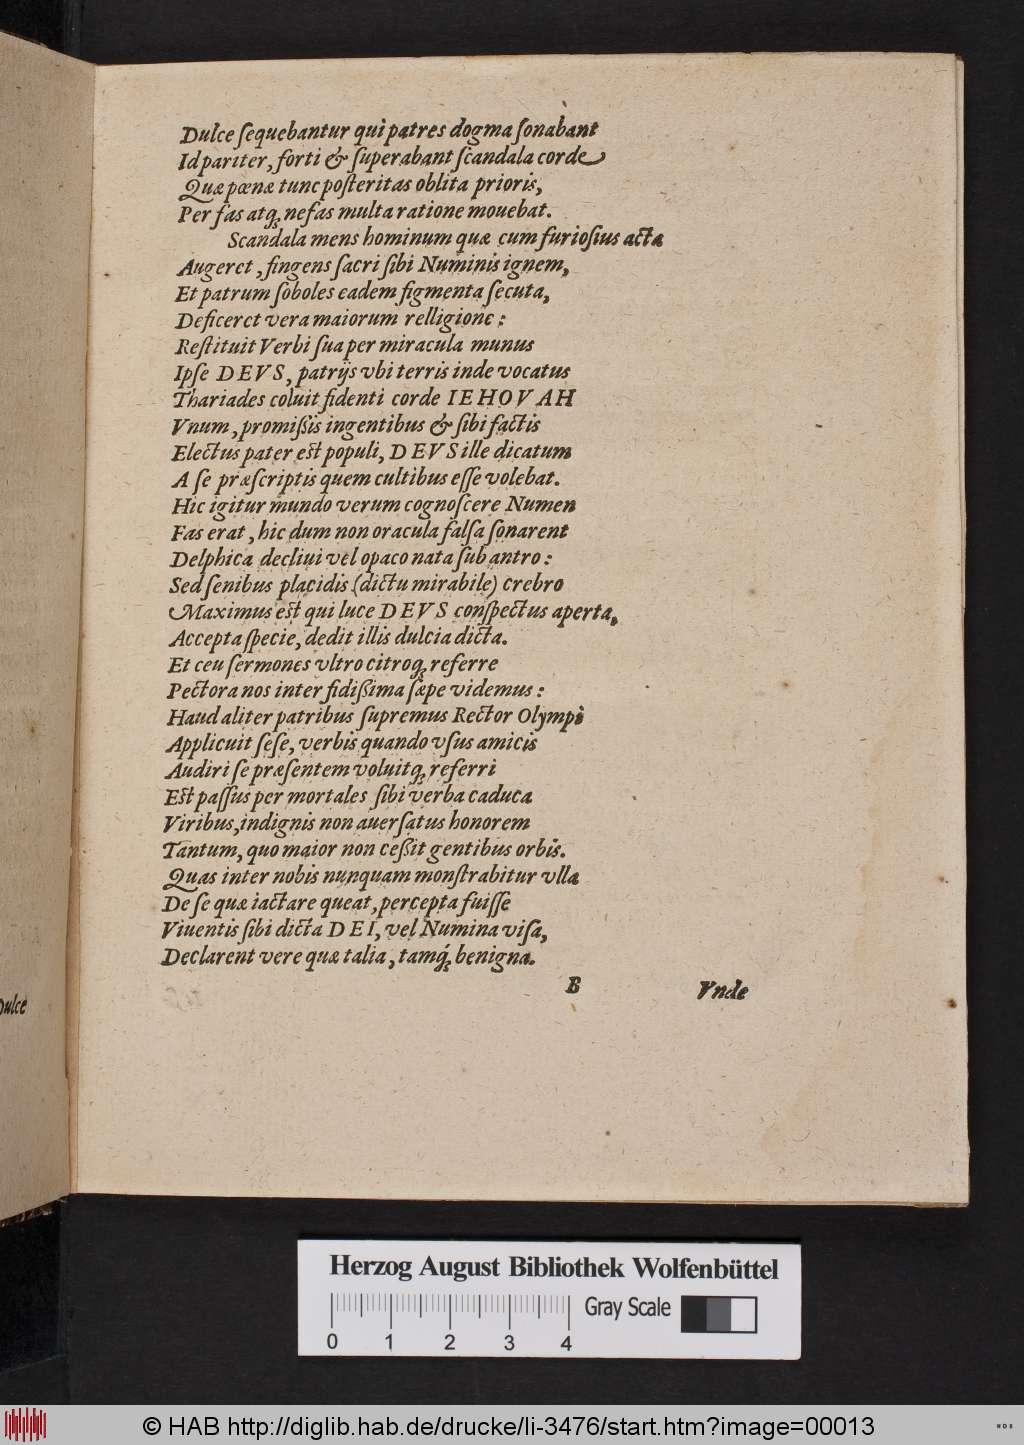 Dulce ſequebantur qui patres dogma ſonabant
Id pariter, forti & ſuperabant ſcandala corde
Quæ pœnæ tunc poſteritas oblita prioris,
Per fas atq́; nefas multa ratione mouebat.
Scandala mens hominum quæ cum furioſius acta
Augeret, fingens ſacri ſibi Numinis ignem,
Et patrum ſoboles eadem figmenta ſecuta,
Deficeret vera maiorum relligione:
Reſtituit Verbi ſua per miracula munus
Ipſe DEVS, patrijs vbi terris inde vocatus
Thariades coluit fidenti corde IEHOVAH
Vnum, promißis ingentibus & ſibi factis
Electus pater eſt populi, DEVS ille dicatum
A ſe præſcriptis quem cultibus eſſe volebat.
Hic igitur mundo verum cognoſcere Numen
Fas erat, hic dum non oracula falſa ſonarent
Delphica decliui vel opaco nata ſub antro:
Sed ſenibus placidis (dictu mirabile) crebro
Maximus eſt qui luce DEVS conſpectus aperta,
Accepta ſpecie, dedit illis dulcia dicta.
Et ceu ſermones vltro citroq́; referre
Pectora nos inter fidißima ſæpe videmus:
Haud aliter patribus ſupremus Rector Olympi
Applicuit ſeſe, verbis quando vſus amicis
Audiri ſe præſentem voluitq́; referri
Eſt paſſus per mortales ſibi verba caduca
Viribus, indignis non auerſatus honorem
Tantum, quo maior non ceßit gentibus orbis.
Quas inter nobis nunquam monſtrabitur vlla
De ſe quæ iactare queat, percepta fuiſſe
Viuentis ſibi dicta DEI, vel Numina viſa,
Declarent vere quæ talia, tamq́; benigna.
B Vnde
Dulce
Herzog August Bibliothek Wolfenbüttel
0 1 2 3 4 Gray Scale
© HAB http://diglib.hab.de/drucke/li-3476/start.htm?image=00013